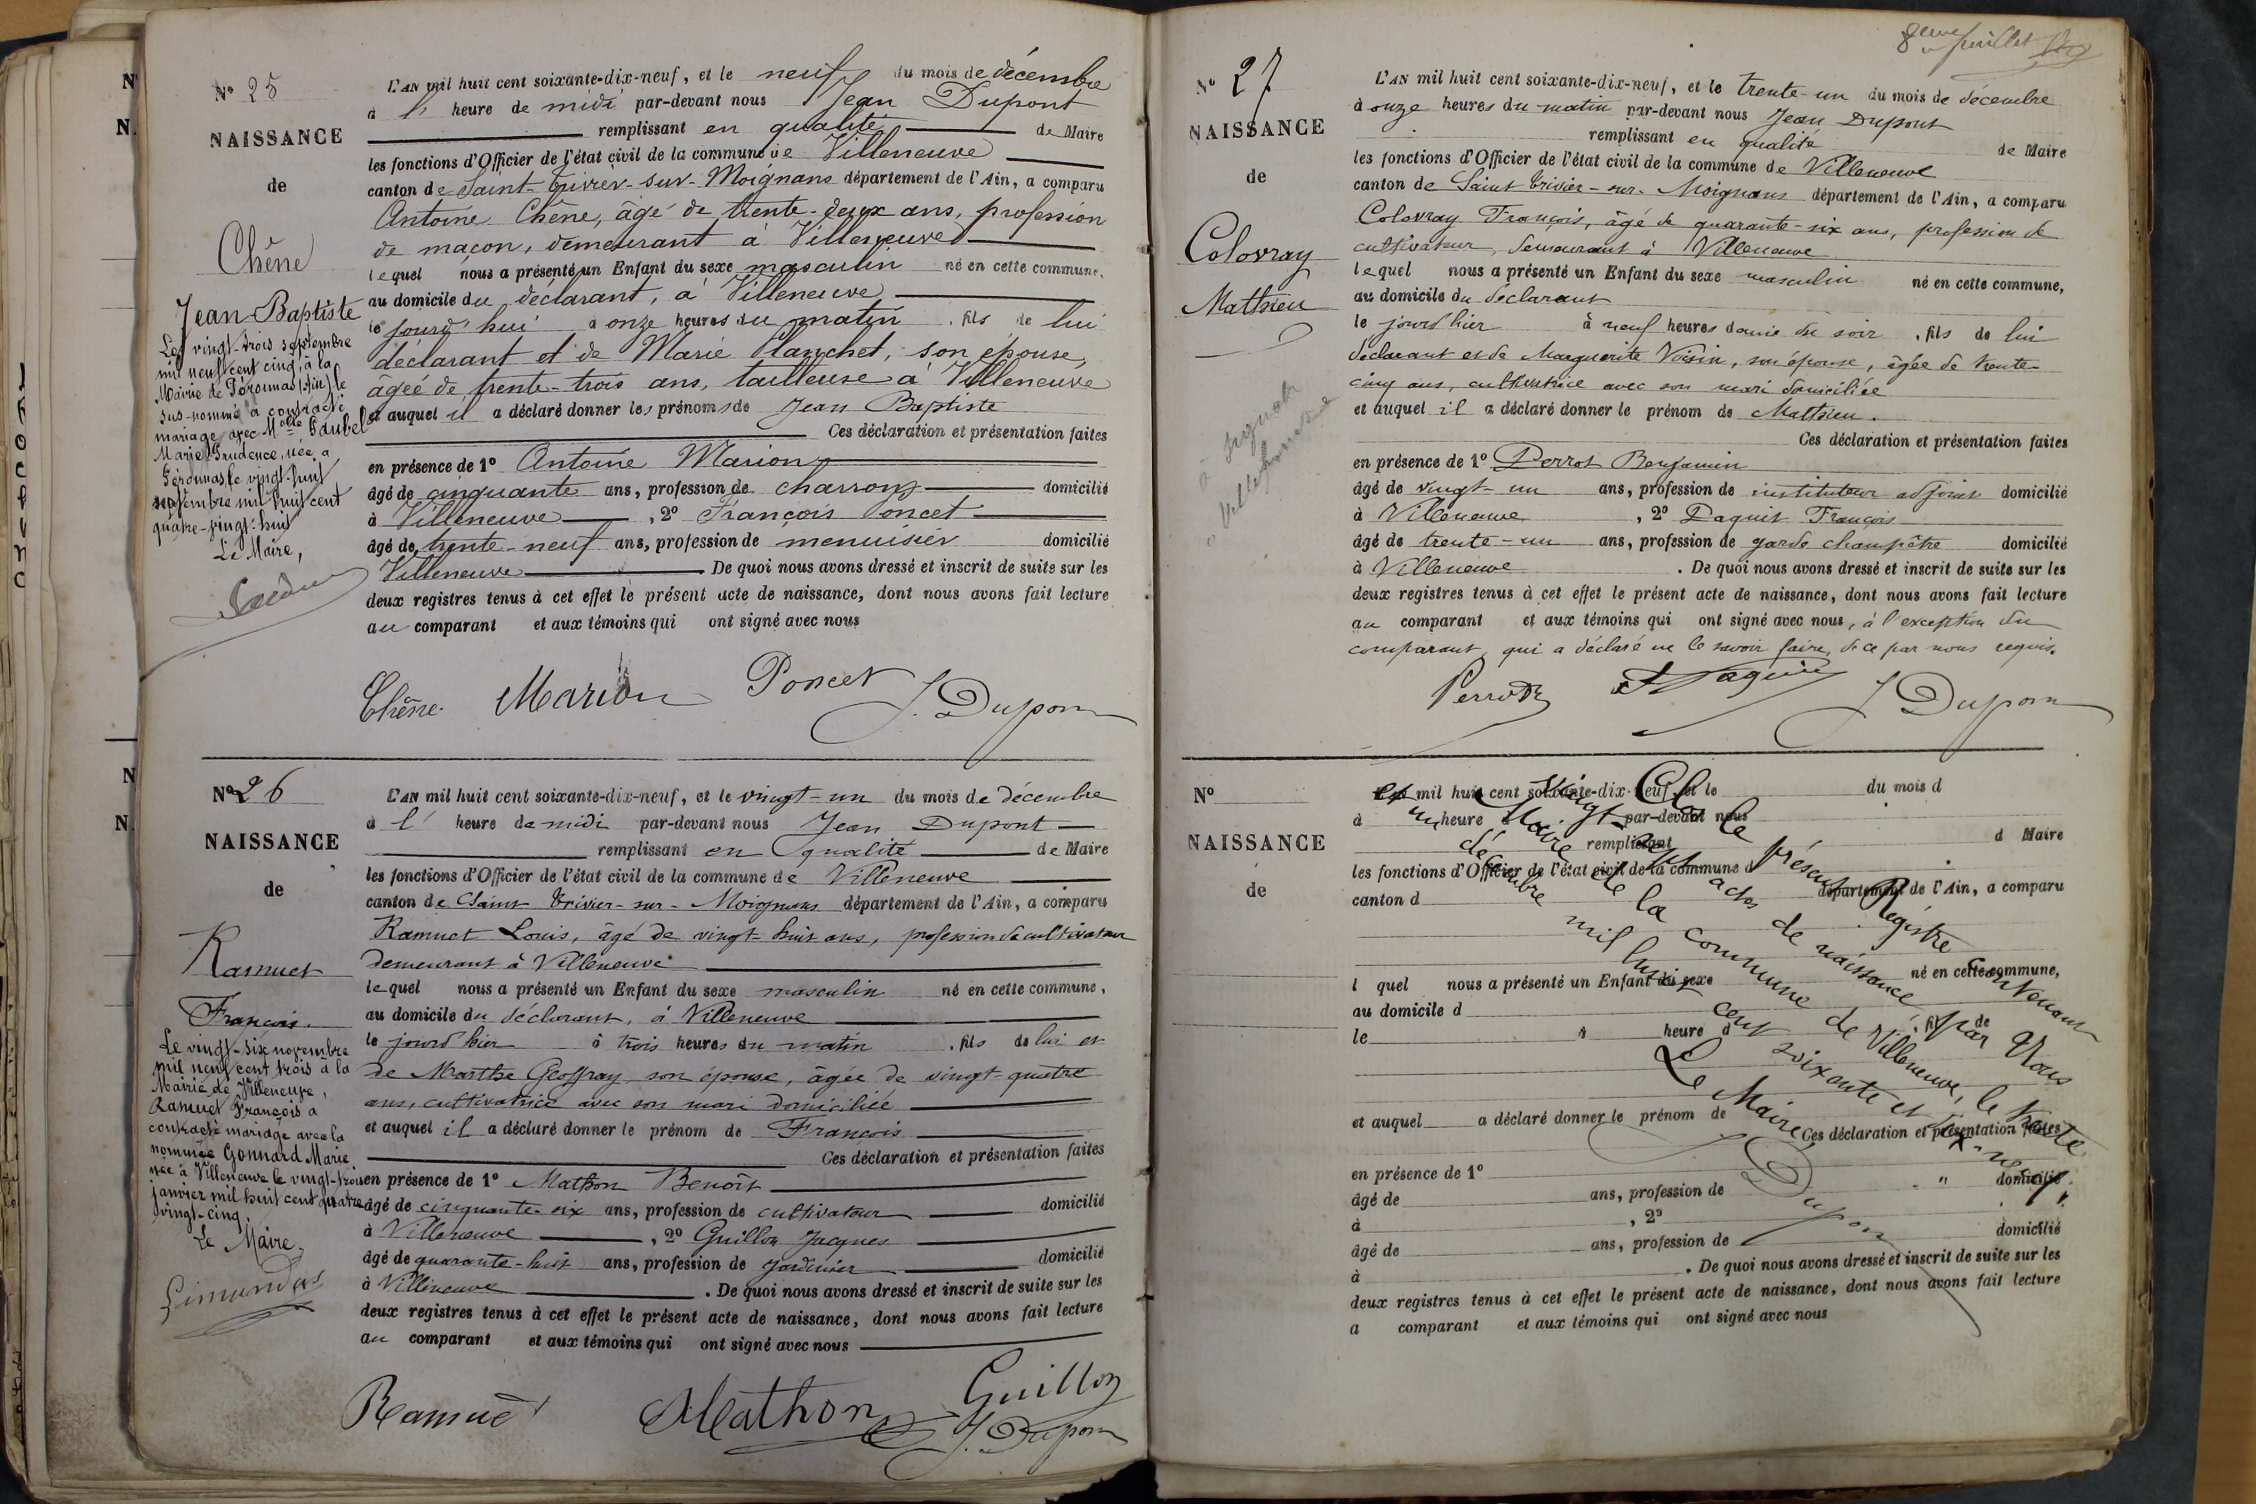 Nº 25
NAISSANCE
de
Chêne
Jean-Baptiste
Le vingt-trois septembre
mil neuf cent cinq, à la
Mairie de Péronnas (Ain) le
sus-nommé a contracté
mariage avec Melle Gaubel
Marie Prudence, née à
Péronnas, le vingt-huit
septembre mil huit cent
quatre-vingt-huit
Le Maire,
L'AN mil huit cent soixante-dix-neuf, et le neuf du mois de décembre
à l' heure de midi par-devant nous Jean Dupont
remplissant en qualité de Maire
les fonctions d'Officier de l'état civil de la commune de Villeneuve
canton de Saint-Trivier-sur-Moignans département de l'Ain, a comparu
Antoine Chêne, âgé de trente-deux ans, profession
de maçon, demeurant à Villeneuve
lequel nous a présenté un Enfant du sexe masculin né en cette commune,
au domicile du déclarant, à Villeneuve
le jourd'hui à onze heures du matin, fils de lui
déclarant et de Marie Planchet, son épouse,
âgée de trente-trois ans, tailleuse à Villeneuve
et auquel il a déclaré donner les prénoms de Jean Baptiste
Ces déclaration et présentation faites
en présence de 1º Antoine Marion
âgé de cinquante ans, profession de charron domicilié
à Villeneuve, 2º François Poncet
âgé de trente-neuf ans, profession de menuisier domicilié
Villeneuve. De quoi nous avons dressé et inscrit de suite sur les
deux registres tenus à cet effet le présent acte de naissance, dont nous avons fait lecture
au comparant et aux témoins qui ont signé avec nous
Chêne Marion Poncet J. Dupont
Nº 26
NAISSANCE
de
Ramuet
François.
Le vingt-six novembre
mil neuf cent trois à la
Mairie de Villeneuve,
Ramuet François a
contracté mariage avec la
nommée Gonnard Marie
née à Villeneuve le vingt-trois
janvier mil huit cent quatre
vingt-cinq.
Le Maire,
Limandas
L'AN mil huit cent soixante-dix-neuf, et le vingt-un du mois de décembre
à l' heure de midi par-devant nous Jean Dupont
remplissant en qualité de Maire
les fonctions d'Officier de l'état civil de la commune de Villeneuve
canton de Saint Trivier-sur-Moignans département de l'Ain, a comparu
Ramuet Louis, âgé de vingt-huit ans, profession de cultivateur
demeurant à Villeneuve
lequel nous a présenté un Enfant du sexe masculin né en cette commune,
au domicile du déclarant, à Villeneuve
le jourd'hier à trois heures du matin, fils de lui et
de Marthe Geoffray son épouse, âgée de vingt-quatre
ans, cultivatrice avec son mari domiciliée
et auquel il a déclaré donner le prénom de François
Ces déclaration et présentation faites
en présence de 1º Mathon Benoît
âgé de cinquante-six ans, profession de cultivateur domicilié
à Villeneuve, 2º Guillon Jacques
âgé de quarante-huit ans, profession de jardinier domicilié
à Villeneuve. De quoi nous avons dressé et inscrit de suite sur les
deux registres tenus à cet effet le présent acte de naissance, dont nous avons fait lecture
au comparant et aux témoins qui ont signé avec nous
Ramuet Mathon Guillon
J. Dupont
8eme feuillet
Nº 27
NAISSANCE
de
Colovray
Mathieu
L'AN mil huit cent soixante-dix-neuf, et le trente-un du mois de décembre
à onze heures du matin par-devant nous Jean Dupont
remplissant en qualité de Maire
les fonctions d'Officier de l'état civil de la commune de Villeneuve
canton de Saint Trivier-sur-Moignans département de l'Ain, a comparu
Colovray François, âgé de quarante-six ans, profession de
cultivateur, demeurant à Villeneuve
lequel nous a présenté un Enfant du sexe masculin né en cette commune,
au domicile du déclarant
le jourd'hier à neuf heures demie du soir, fils de lui
déclarant et de Marguerite Voisin, son épouse, âgée de trente-
cinq ans, cultivatrice avec son mari domiciliée
et auquel il a déclaré donner le prénom de Mathieu.
Ces déclaration et présentation faites
en présence de 1º Perrot Benjamin
âgé de vingt-un ans, profession de instituteur adjoint domicilié
à Villeneuve, 2º Paquit François
âgé de trente-un ans, profession de garde champêtre domicilié
à Villeneuve. De quoi nous avons dressé et inscrit de suite sur les
deux registres tenus à cet effet le présent acte de naissance, dont nous avons fait lecture
au comparant et aux témoins qui ont signé avec nous, à l'exception du
comparant, qui a déclaré ne le savoir faire, de ce par nous requis.
Perrot J. Dupont
Nº
NAISSANCE
de
mil huit cent soixante-dix-neuf, et le du mois d
à heure par-devant nous
remplissant d Maire
les fonctions d'Officier de l'état civil de la commune d
canton d département de l'Ain, a comparu
l quel nous a présenté un Enfant du sexe né en cette commune,
au domicile d
le à heure d, fil de
et auquel a déclaré donner le prénom de
Ces déclaration et présentation faites
en présence de 1º
âgé de ans, profession de domicilié
à, 2º
âgé de ans, profession de domicilié
à. De quoi nous avons dressé et inscrit de suite sur les
deux registres tenus à cet effet le présent acte de naissance, dont nous avons fait lecture
a comparant et aux témoins qui ont signé avec nous
Clos le présent Régistre contenant
vingt-sept actes de naissance par Nous
Maire de la commune de Villeneuve, le trente
un décembre mil huit cent soixante et dix-neuf.
Le Maire,
J Dupont